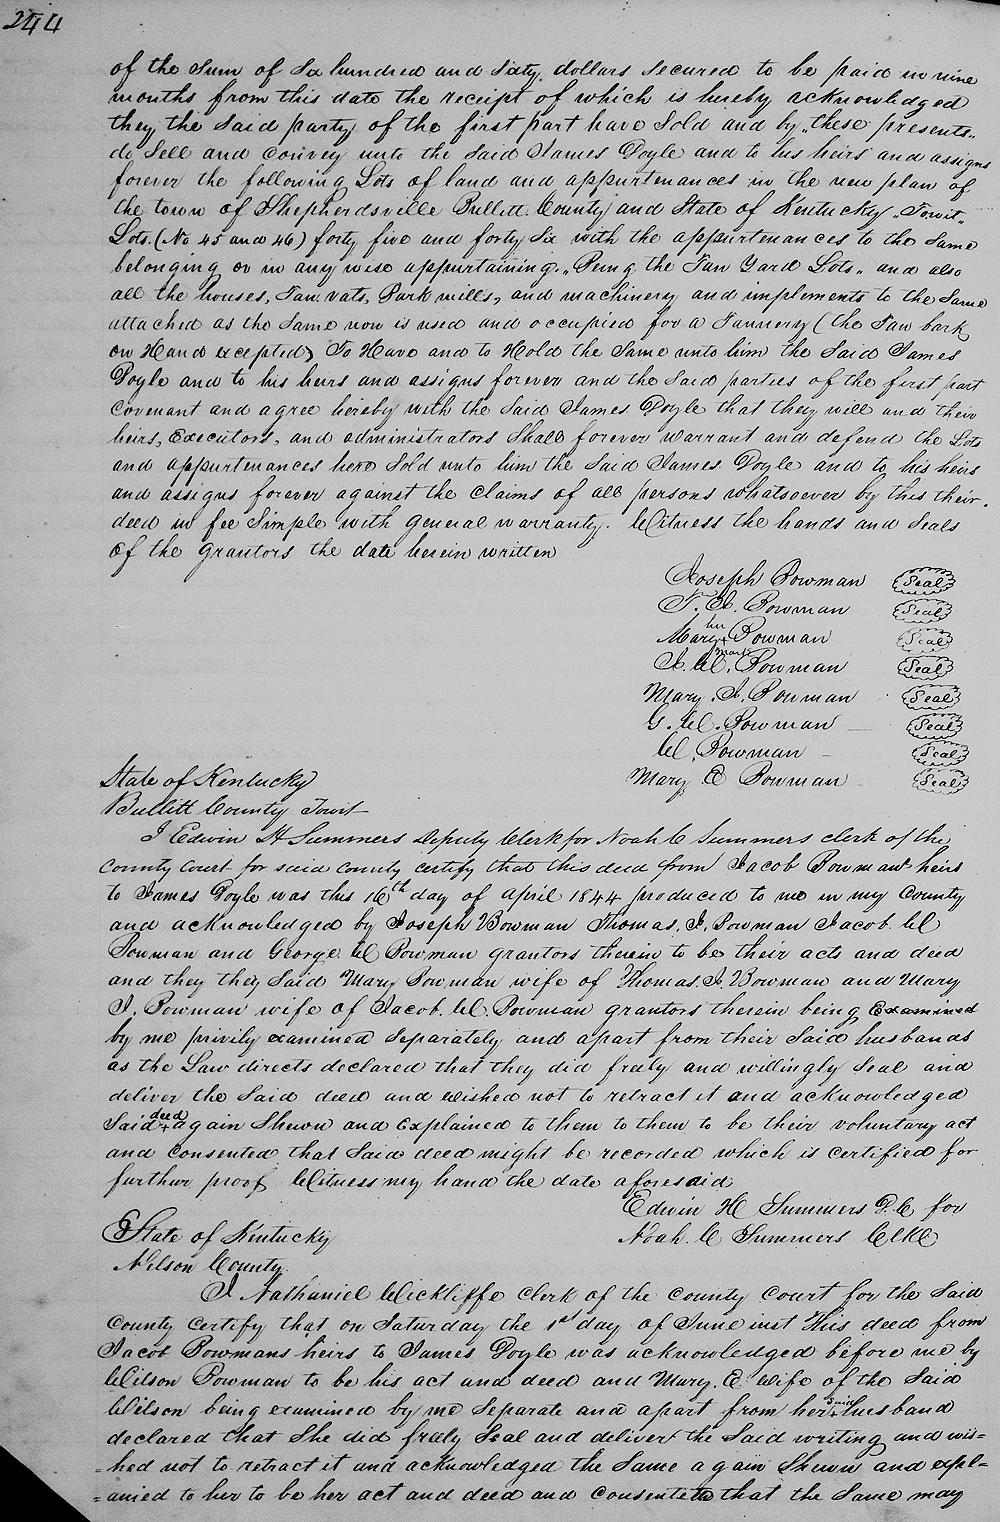 244
of the Sum of Six hundred and Sixty dollars Secured to be paid in nine
months from this date the receipt of which is hereby acknowledged
they the Said party of the first part have Sold and by "these presents"
do Sell and Convey unto the Said James Doyle and to his heirs and assigns
forever the following Lots of land and appurtenances in the new plan of
the town of Shepherdsville Bullitt County and State of Kentucky "Towit"
Lots. (No 45 and 46) forty five and forty Six with the appurtenances to the Same
belonging or in any wise appurtaining. "Being the Tan Yard Lots" and also
all the houses, Tan vats, Bark mills, and machinery and implements to the Same
attached as the Same now is used and occupied for a Tannery (the Tan bark
on Hand excepted) To Have and to Hold the Same unto him the Said James
Doyle and to his heirs and assigns forever and the Said parties of the first part
Covenant and agree hereby with the Said James Doyle that they will and their
heirs, Executors, and administrators Shall forever warrant and defend the Lots
and appurtenances here Sold unto him the Said James Doyle and to his heirs
and assigns forever against the Claims of all persons whatsoever by this their
deed in fee Simple with general warranty. Witness the hands and Seals
of the grantors the date herein written
Joseph Bowman Seal
T. J. Bowman Seal
Mary her + mark Bowman Seal
J. W. Bowman Seal
Mary. J. Bowman Seal
G. W. Bowman Seal
W. Bowman Seal
Mary E Bowman Seal
State of Kentucky
Bullitt County Towit
I Edwin H Summers Deputy Clerk for Noah C Summers clerk of the
County Court for said County certify that this deed from Jacob Bowmans heirs
to James Doyle was this 16th day of April 1844 produced to me in my County
and acknowledged by Joseph Bowman Thomas. J. Bowman Jacob. W
Bowman and George W Bowman grantors therein to be their acts and deed
and they they Said Mary Bowman wife of Thomas. J. Bowman and Mary
J. Bowman wife of Jacob. W. Bowman grantors therein being Examined
by me privily examined Separately and apart from their Said husbands
as the Law directs declared that they did freely and willingly Seal and
deliver the Said deed and wished not to retract it and acknowledged
Said deed again Shewn and Explained to them to them to be their voluntary act
and Consented that Said deed might be recorded which is certified for
further proof Witness my hand the date aforesaid
Edwin H Summers D.C for
Noah. C Summers Clk
State of Kentucky
Nelson County
I Nathaniel Wickliffe Clerk of the County Court for the Said
County Certify that on Saturday the 1st day of June inst This deed from
Jacob Bowmans heirs to James Doyle was acknowledged before me by
Wilson Bowman to be his act and deed and Mary. E. wife of the Said
Wilson being examined by me Separate and apart from her Said husband
declared that She did freely Seal and deliver the Said writing and wis=
=hed not to retract it and acknowledged the Same again Shewn and expl=
=anied to her to be her act and deed and Consented that the Same may